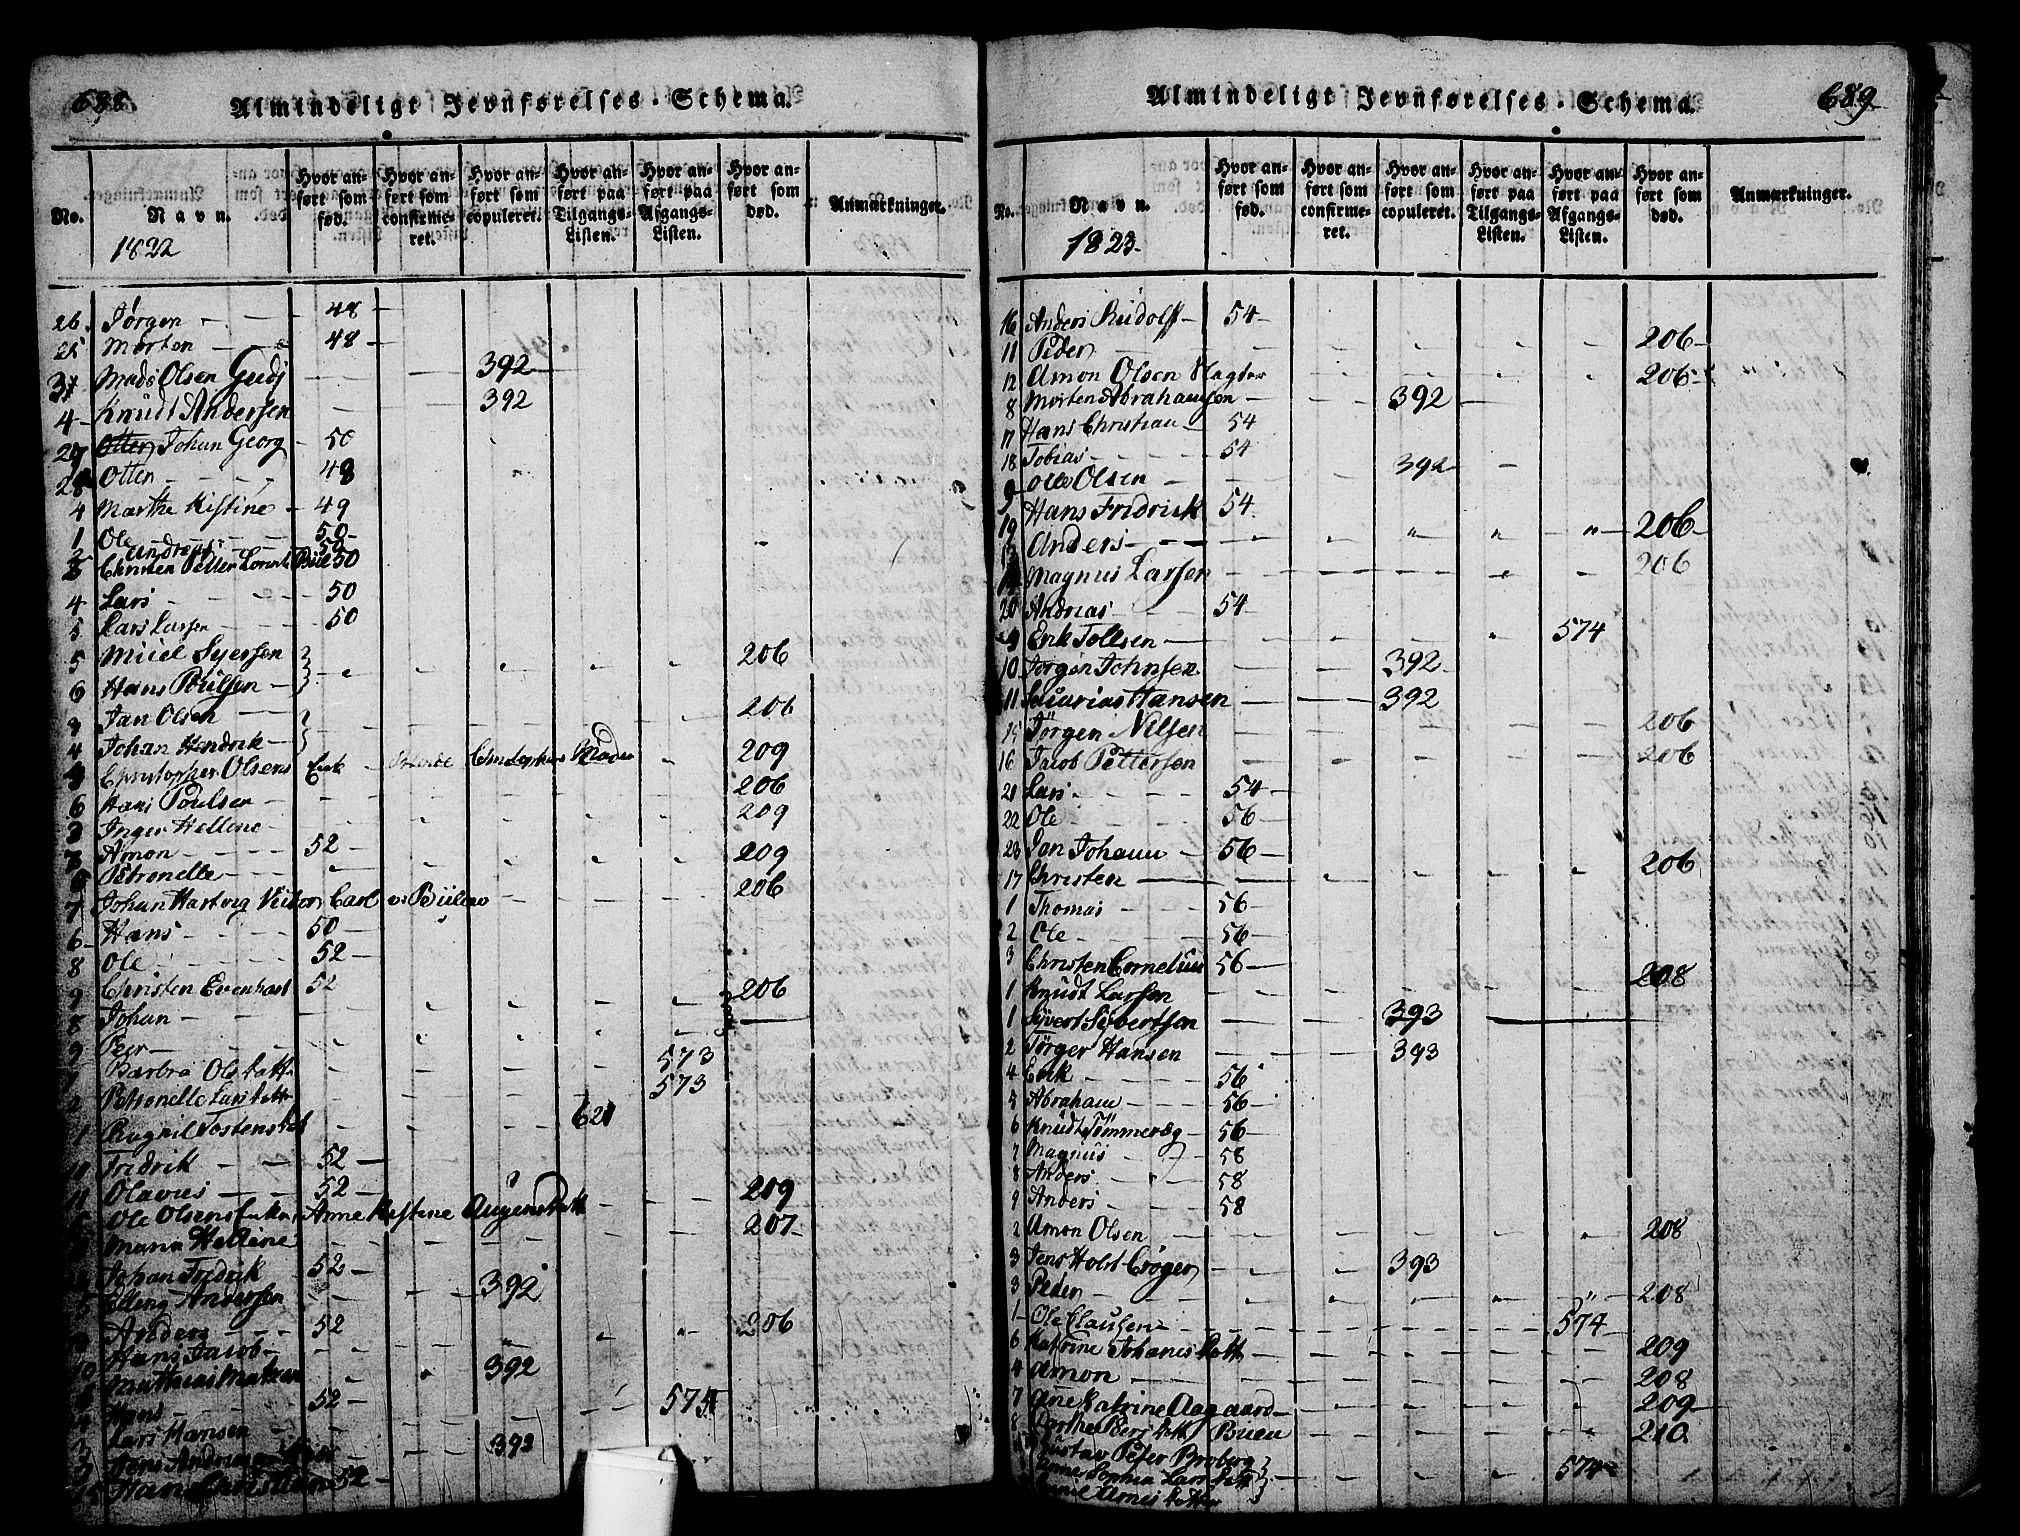 688.
Almindeligt Jevnførelses-Schema.
No.
Navn.
Hvor anført som fød.
Hvor anført som confirmeret.
Hvor anført som copuleret.
Hvor anført paa Tilgangs-Listen.
Hvor anført paa Afgangs-Listen.
Hvor anført som død.
Anmærkninger.
1822
26. Jørgen 48
25 Morten 48
Mads Olsen 392
4 Knudt Andersen 392
Johan Georg 50
28 Otten 48
4 Marthe Kistine 49
1 Ole 50
Andreas 50
3 Christen Petter 50
4 Lars 50
5 Lars Larsen 50
5 206
6 Hans Poulsen
3 Jan Olsen 206
4 Johan Hendrik
Christopher Olsens 209
6 Hans Poulsen 206
Inger Hellene 209
7 Amon 52
Petronelle 209
7 Johan Hartvig 206
6 Hans 50
8 Ole 52
9 Christen Evenhart 52
8 Johan 206
9 Peer
Barbra 573
2 Petronelle 573
1 621
10 Fridrik 52
11 Olavus 52
Ole Olsens Anne Kistine 209
Maria Hellene 207
Johan Fridrik 52
Elling Andersen 392
Anders 52
Hans Jacob 206
Mathias 392
Hans 52
Lars Hansen 574
Jens 392
Hans Christian 52
689
Almindeligt Jevnførelses-Schema.
No.
Navn.
Hvor anført som fød.
Hvor anført som confirmeret.
Hvor anført som copuleret.
Hvor anført paa Tilgangs-Listen.
Hvor anført paa Afgangs-Listen.
Hvor anført som død.
Anmærkninger.
1823.
16 Anders Rudolf 54
11 Peder 206
12 Amon Olsen Slagter 206
8 Morten Abrahamsen 392
17 Hans Christian 54
18 Tobias 54
9 Olle Olsen 392
19 Hans Fridrick 54
13 Anders 206
Magnus Larsen 206
20 Andreas 54
9 Erik Tollsen 574
10 Jørgen Johnsen 392
11 Sacarias Hansen 392
15 Jørgen Nilsen 206
16 Jacob Pettersen 206
21 Lars 54
22 Ole 56
23 Jan Johann 56
17 Christen 206
1 Thomas 56
2 Ole 56
3 Christen Cornelius 56
1 Knudt Larsen 208
1 Syvert Syvertsen 393
2 Tørger Hansen 393
4 Erik 56
5 Abraham 56
6 Knudt Tømmeraag 56
7 Magnus 58
8 Anders 58
9 Anders 58
2 Amon Olsen 208
3 Jens Holst Crøger 393
3 Peder 208
1 Ole Clausen 574
6 Katrine Johanes Datt 209
4 Amon 208
7 Ane Katrine Aagaard 209
8 Dorthe Pers Datt 210
Gustav Peter Broberg
Anne Sophia Lars Datt 574